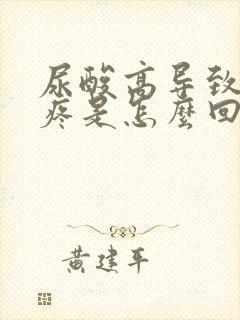 尿酸高导致
疼是怎麼回
黄建平